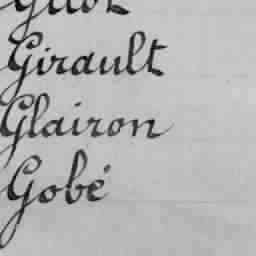 Girault
Glairon
Gobé